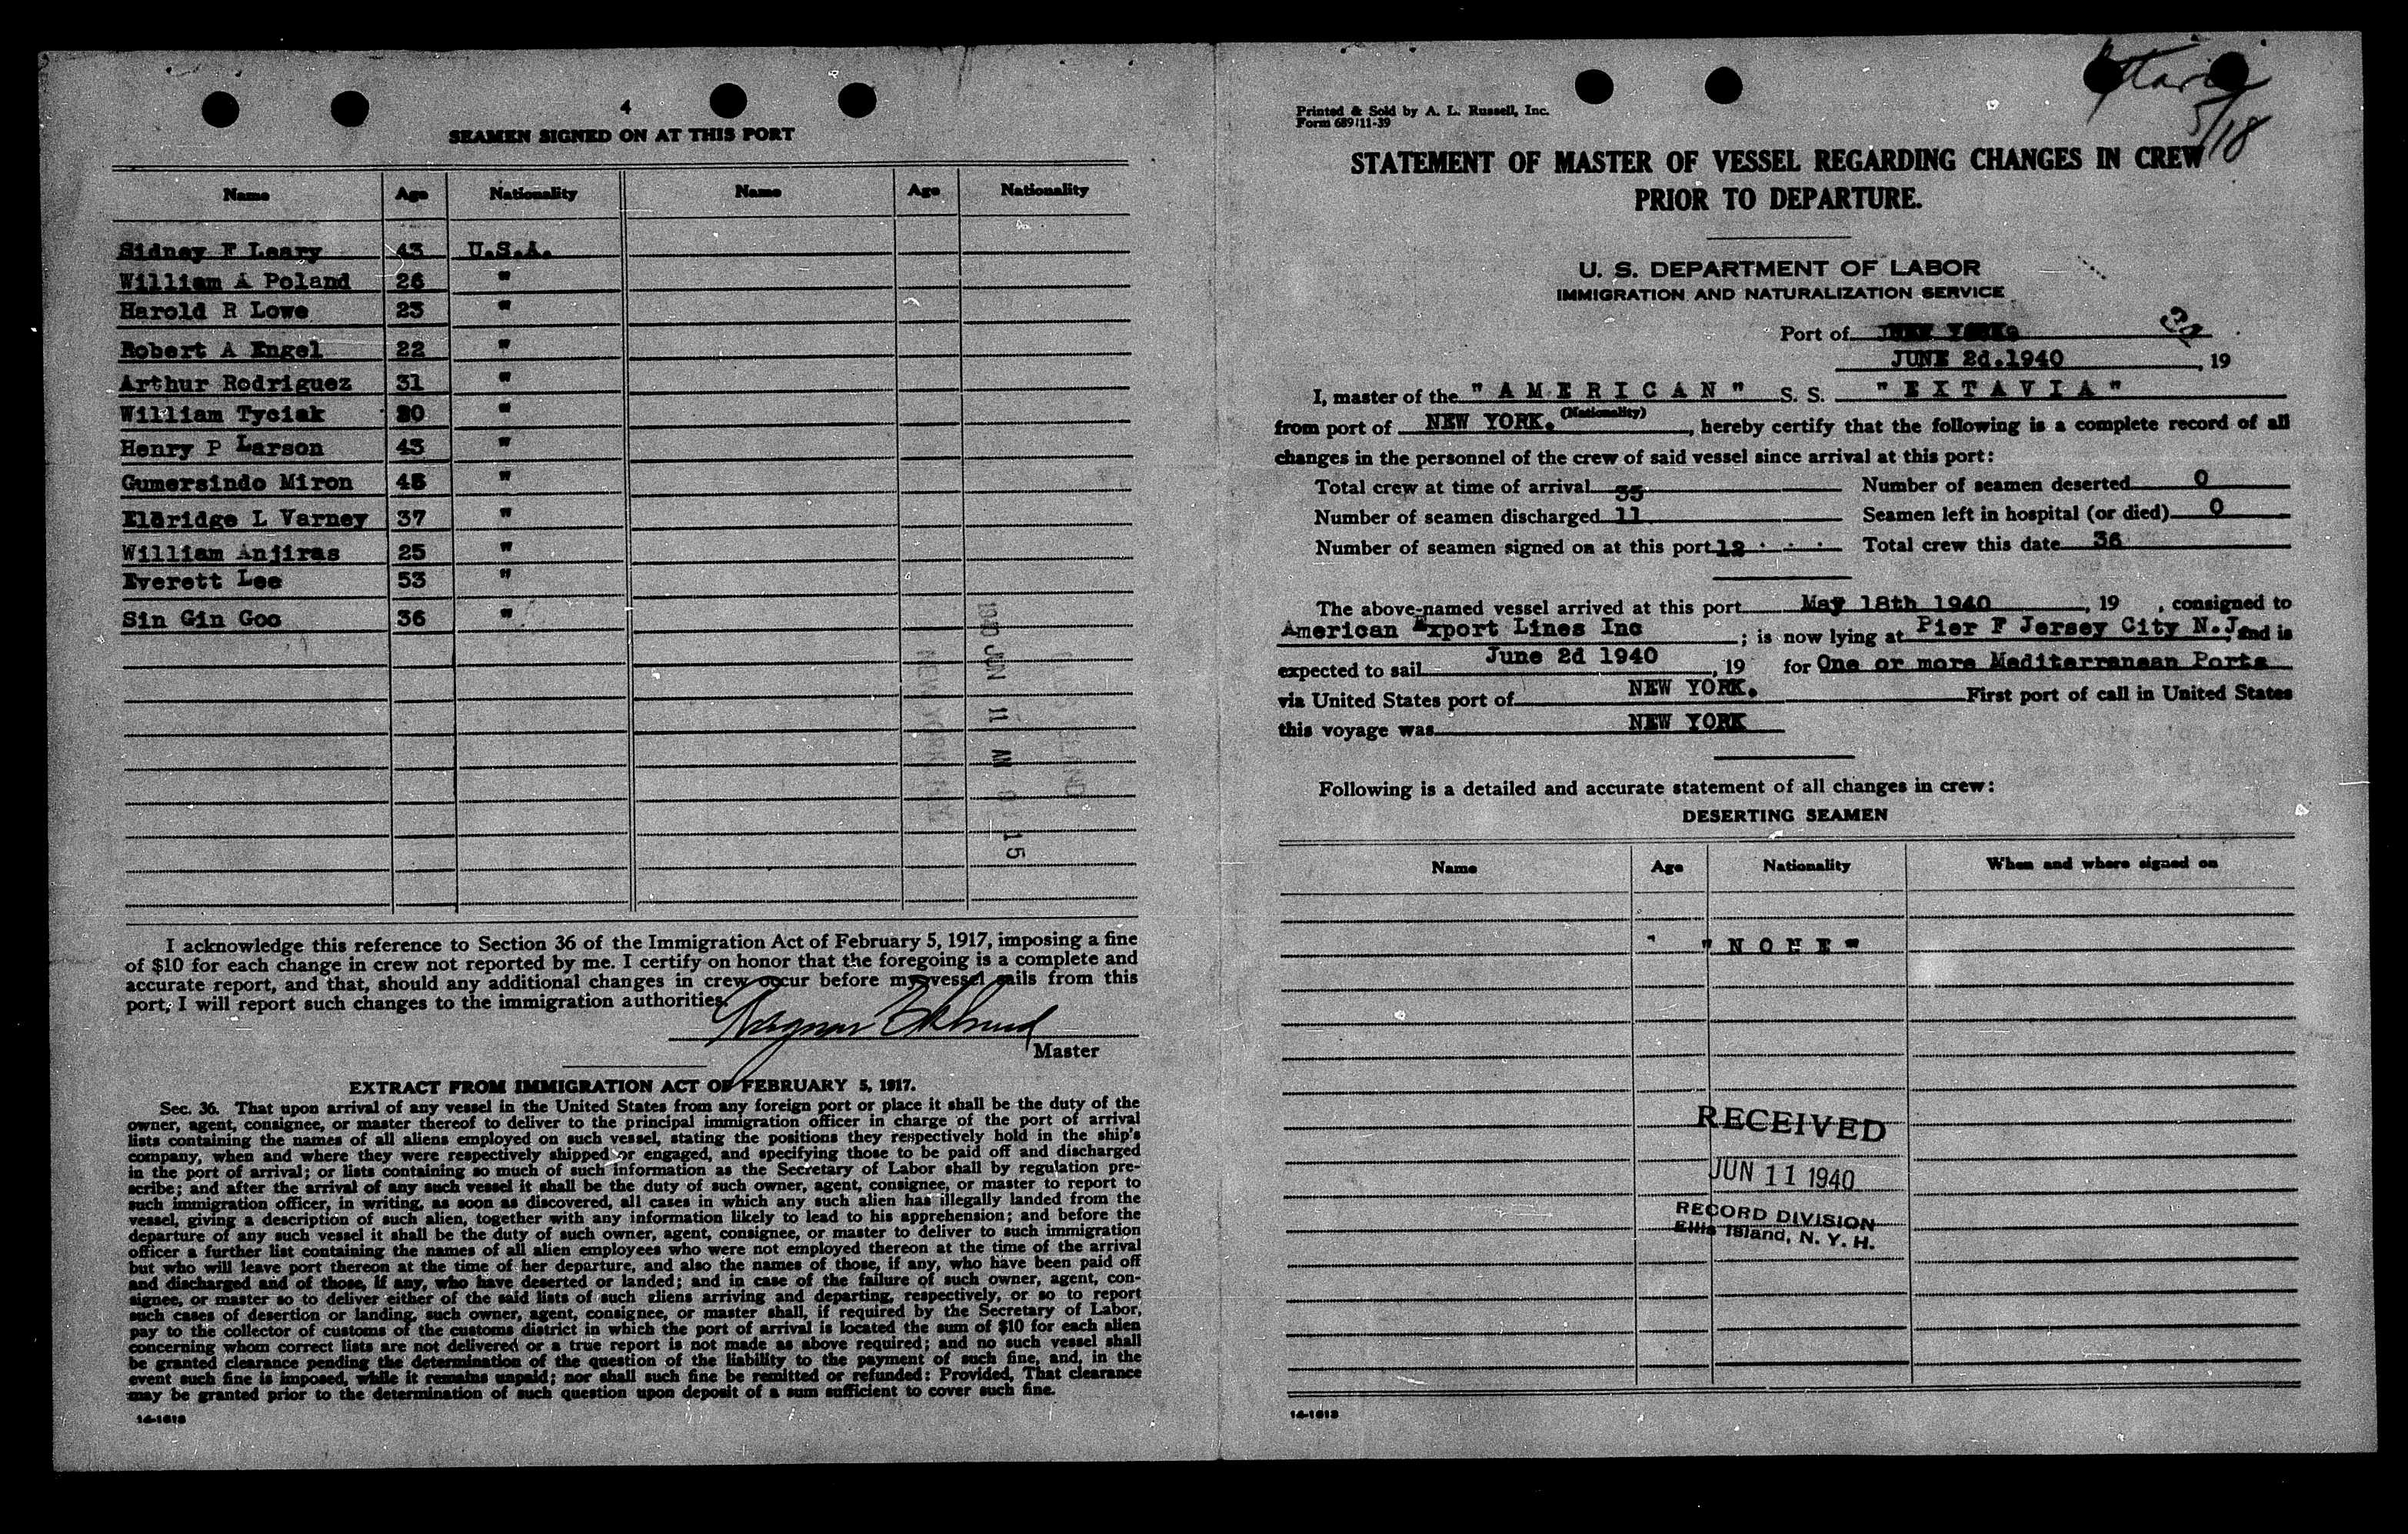 4
SEAMEN SIGNED ON AT THIS PORT
Name Age Nationality Name Age Nationality
Sidney F Leary 43 U.S.A.
William A Poland 26 "
Harold R Lowe 23 "
Robert A Engel 22 "
Arthur Rodriguez 31 "
William Tyciak 20 "
Henry P Larson 43 "
Gumersindo Miron 48 "
Eldridge L Varney 37 "
William Anjiras 25 "
Everett Lee 53 "
Sin Gin Goo 36 "
1940 JUN 11 AM 9 15
NEW YORK
I acknowledge this reference to Section 36 of the Immigration Act of February 5, 1917, imposing a fine
of $10 for each change in crew not reported by me. I certify on honor that the foregoing is a complete and
accurate report, and that, should any additional changes in crew occur before my vessel sails from this
port, I will report such changes to the immigration authorities.
Ragnar Eklund
Master
EXTRACT FROM IMMIGRATION ACT OF FEBRUARY 5, 1917.
Sec. 36. That upon arrival of any vessel in the United States from any foreign port or place it shall be the duty of the
owner, agent, consignee, or master thereof to deliver to the principal immigration officer in charge of the port of arrival
lists containing the names of all aliens employed on such vessel, stating the positions they respectively hold in the ship's
company, when and where they were respectively shipped or engaged, and specifying those to be paid off and discharged
in the port of arrival; or lists containing so much of such information as the Secretary of Labor shall by regulation pre-
scribe; and after the arrival of any such vessel it shall be the duty of such owner, agent, consignee, or master to report to
such immigration officer, in writing, as soon as discovered, all cases in which any such alien has illegally landed from the
vessel, giving a description of such alien, together with any information likely to lead to his apprehension; and before the
departure of any such vessel it shall be the duty of such owner, agent, consignee, or master to deliver to such immigration
officer a further list containing the names of all alien employees who were not employed thereon at the time of the arrival
but who will leave port thereon at the time of her departure, and also the names of those, if any, who have been paid off
and discharged and of those, if any, who have deserted or landed; and in case of the failure of such owner, agent, con-
signee, or master so to deliver either of the said lists of such aliens arriving and departing, respectively, or so to report
such cases of desertion or landing, such owner, agent, consignee, or master shall, if required by the Secretary of Labor,
pay to the collector of customs of the customs district in which the port of arrival is located the sum of $10 for each alien
concerning whom correct lists are not delivered or a true report is not made as above required; and no such vessel shall
be granted clearance pending the determination of the question of the liability to the payment of such fine, and, in the
event such fine is imposed, while it remains unpaid; nor shall such fine be remitted or refunded: Provided, That clearance
may be granted prior to the determination of such question upon deposit of a sum sufficient to cover such fine.
14-1613
5/18
Printed & Sold by A. L. Russell, Inc.
Form 689/11-39
STATEMENT OF MASTER OF VESSEL REGARDING CHANGES IN CREW
PRIOR TO DEPARTURE.
U. S. DEPARTMENT OF LABOR
IMMIGRATION AND NATURALIZATION SERVICE
Port of NEW YORK.
JUNE 2d.1940, 19
I, master of the "AMERICAN" S. S. "EXTAVIA"
(Nationality)
from port of NEW YORK., hereby certify that the following is a complete record of all
changes in the personnel of the crew of said vessel since arrival at this port:
Total crew at time of arrival 35 Number of seamen deserted 0
Number of seamen discharged 11 Seamen left in hospital (or died) 0
Number of seamen signed on at this port 12 Total crew this date 36
The above-named vessel arrived at this port May 18th 1940, 19 , consigned to
American Export Lines Inc ; is now lying at Pier F Jersey City N.J. and is
expected to sail June 2d 1940, 19 for One or more Mediterranean Ports
via United States port of NEW YORK. First port of call in United States
this voyage was NEW YORK
Following is a detailed and accurate statement of all changes in crew:
DESERTING SEAMEN
Name Age Nationality When and where signed on
"NONE"
RECEIVED
JUN 11 1940
RECORD DIVISION
Ellis Island, N. Y. H.
14-1613